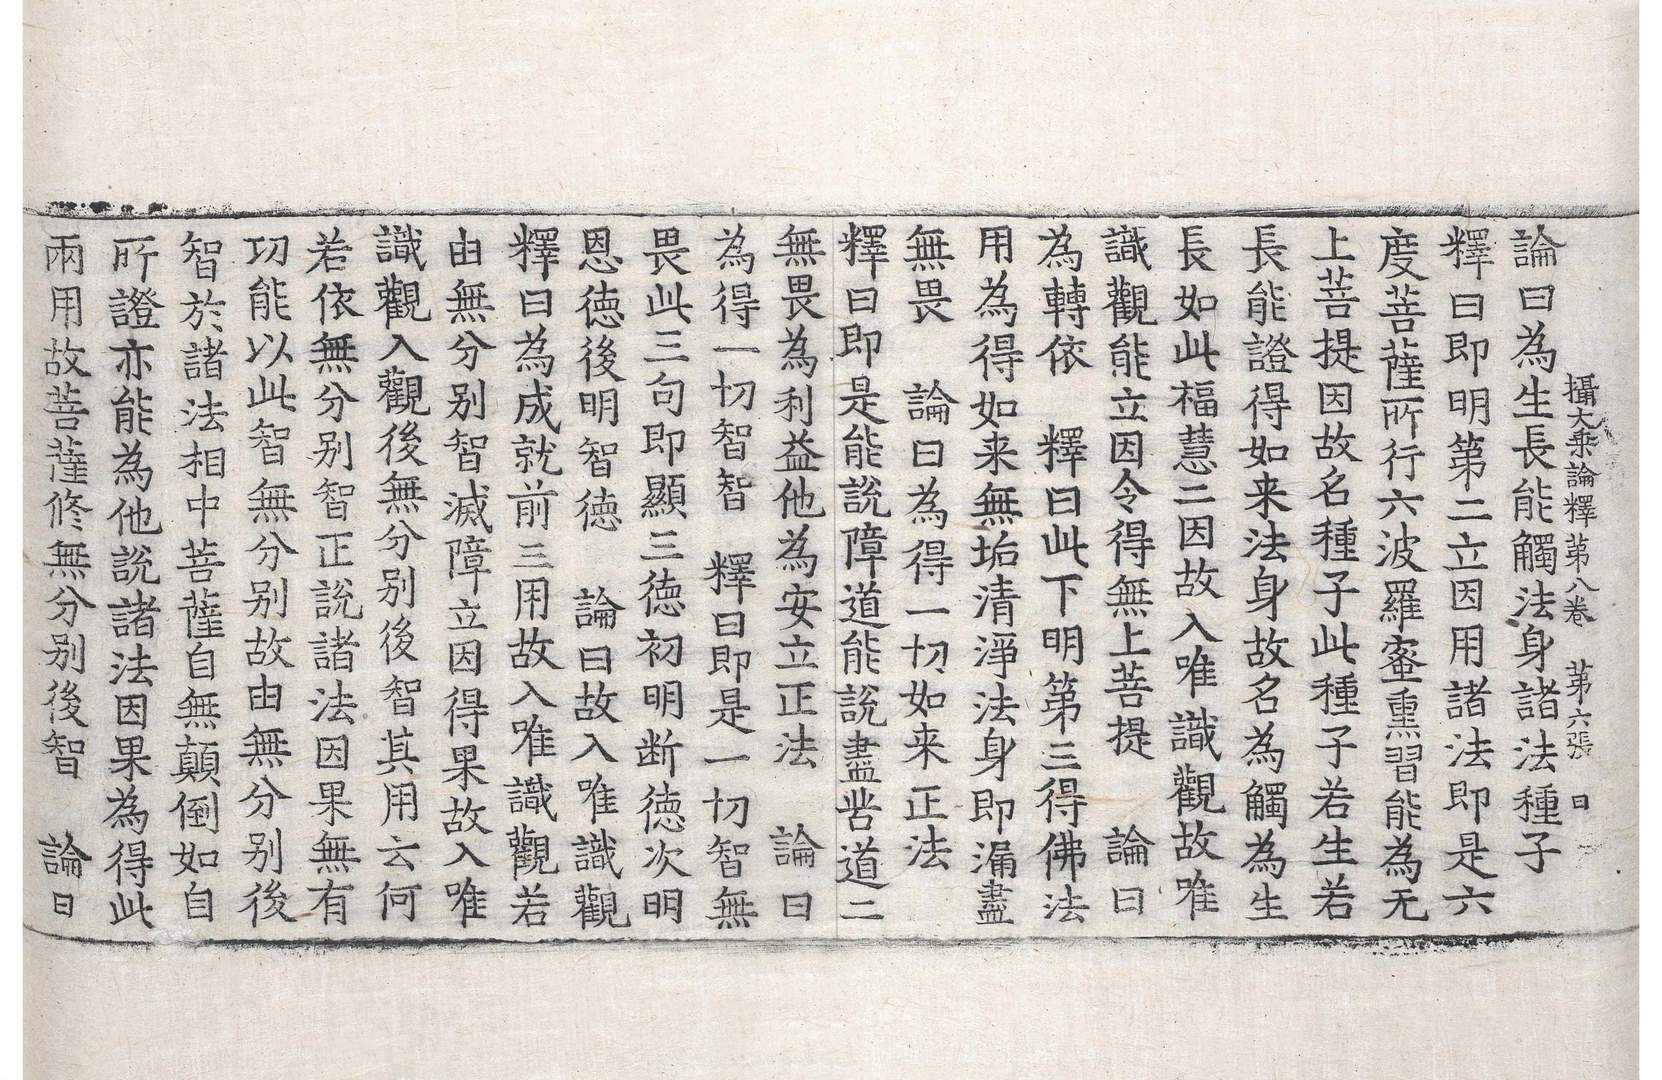 攝大乗論釋第八卷　第六張　日
論曰為生長能觸法身諸法種子
釋曰即明第二立因用諸法即是六
度菩薩所行六波羅蜜熏習能為无
上菩提因故名種子此種子若生若
長能證得如来法身故名為觸為生
長如此福慧二因故入唯識觀故唯
識觀能立因令得無上菩提　論曰
為轉依　釋曰此下明第三得佛法
用為得如来無垢清淨法身即漏盡
無畏　論曰為得一切如来正法
釋曰即是能說障道能說盡苦道二
無畏為利益他為安立正法　論曰
為得一切智智　釋曰即是一切智無
畏此三句即顯三德初明断德次明
恩德後明智德　論曰故入唯識觀
釋曰為成就前三用故入唯識觀若
由無分别智滅障立因得果故入唯
識觀入觀後無分别後智其用云何
若依無分别智正說諸法因果無有
功能以此智無分别故由無分别後
智於諸法相中菩薩自無顛倒如自
所證亦能為他說諸法因果為得此
兩用故菩薩修無分别後智　論曰